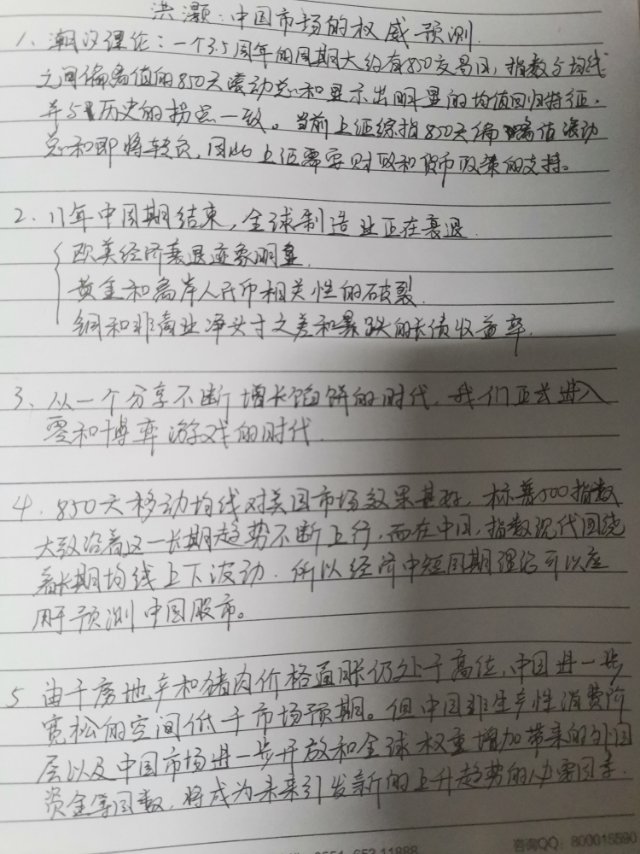 洪灝：中国市场的权威预测
1、潮汐理论：一个3.5周年的周期大约有850交易日，指数与均线
之间偏离值的850天滚动总和显示出明显的均值回归特征，
并与历史的拐点一致。当前上证综指850天偏离值滚动
总和即将转负，因此上证需要财政和货币政策的支持。
2、11年中周期结束，全球制造业正在衰退
欧美经济衰退迹象明显
黄金和离岸人民币相关性的破裂
铜和非商业净头寸之差和暴跌的长债收益率
3、从一个分享不断增长馅饼的时代，我们正式进入
零和博弈游戏的时代
4、850天移动均线对美国市场效果甚好，标普500指数
大致沿着这一长期趋势不断上行，而在中国，指数现代围绕
着长期均线上下波动。所以经济中短周期理论可以应
用于预测中国股市。
5 由于房地产和猪肉价格通胀仍处于高位，中国进一步
宽松的空间低于市场预期。但中国非生产性消费阶
层以及中国市场进一步开放和全球权重增加带来的外国
资金等因数，将成为未来引发新的上升趋势的必要因素
0551-65311888
咨询QQ：800015590